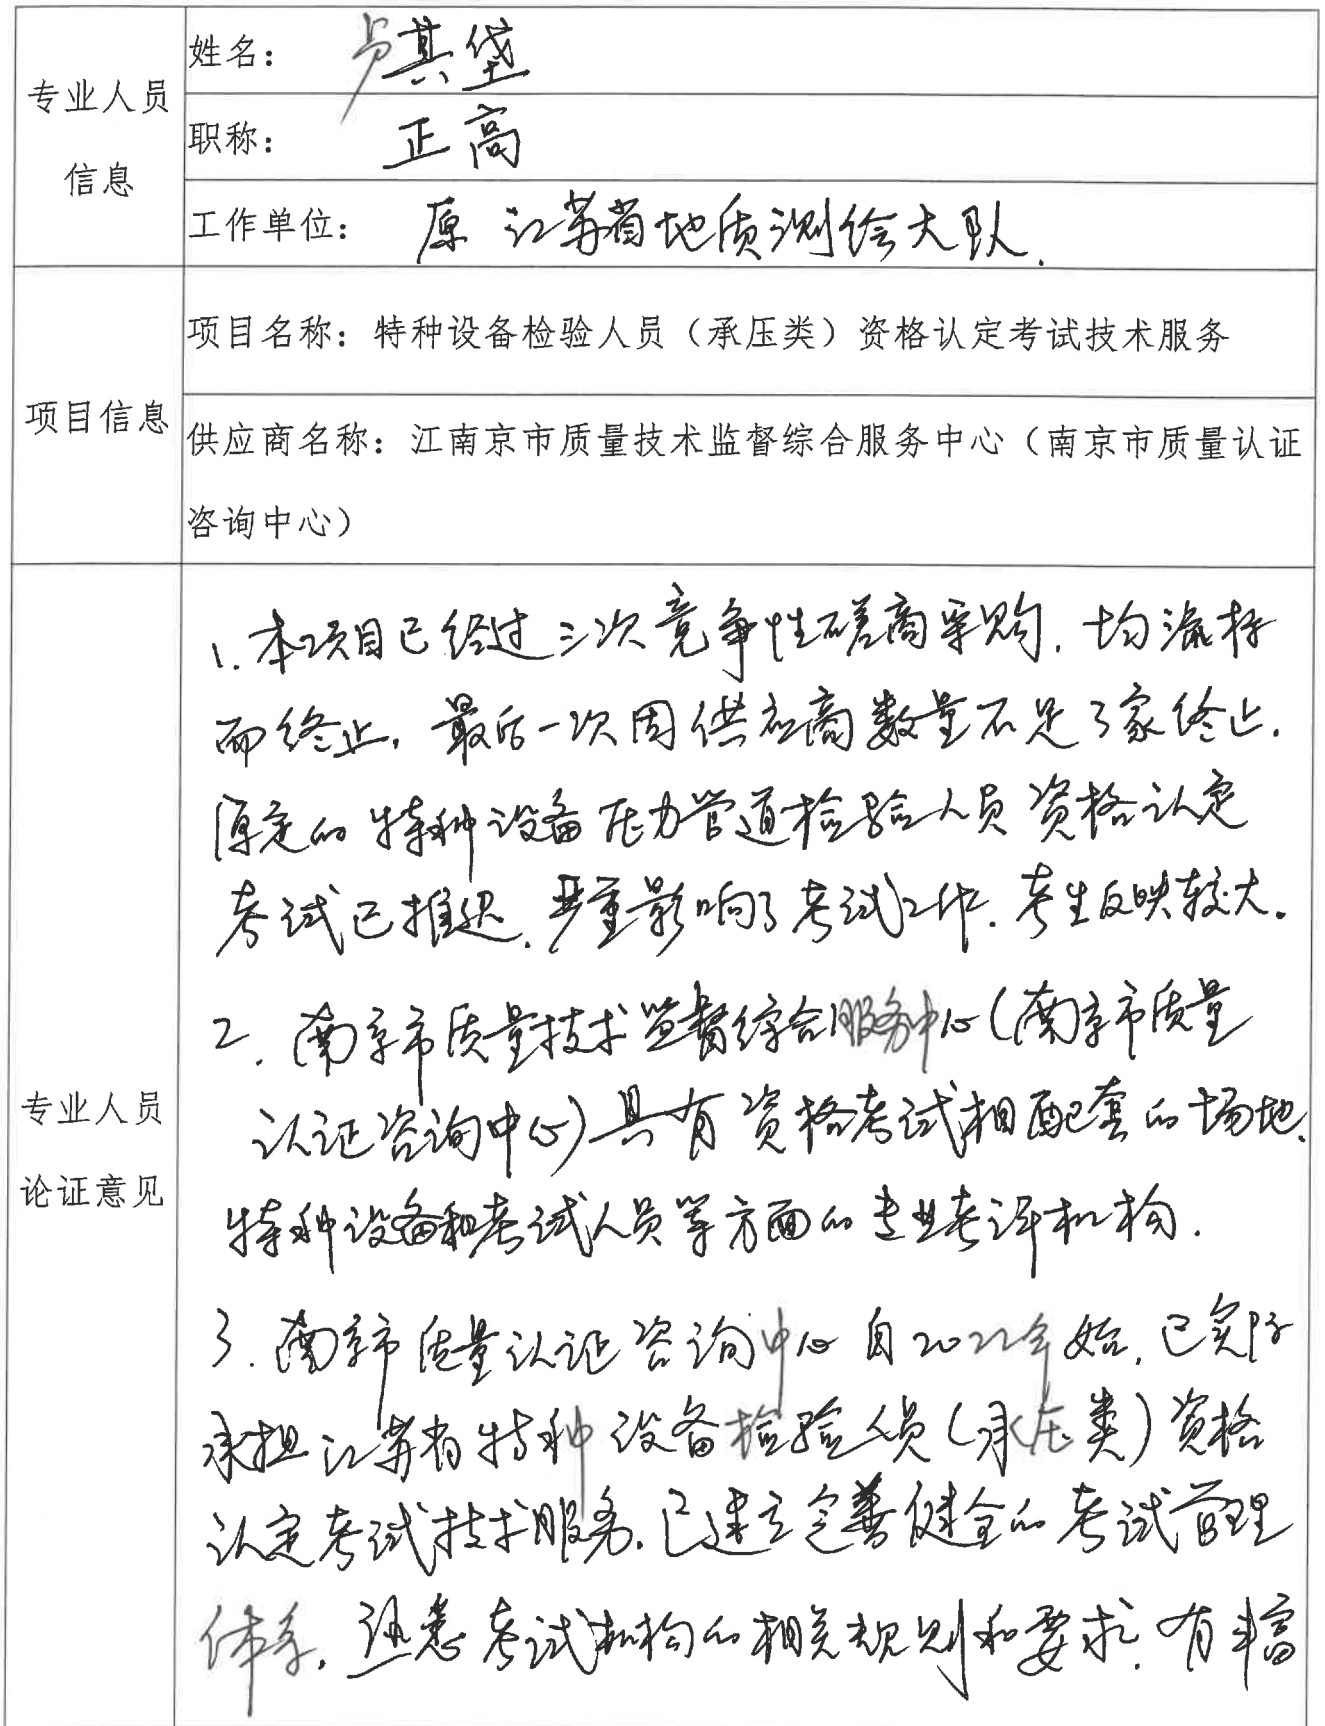 专业人员
信息
姓名：其垡
职称：正高
工作单位：原 江苏省地质测绘大队.
项目信息
项目名称：特种设备检验人员（承压类）资格认定考试技术服务
供应商名称：江南京市质量技术监督综合服务中心（南京市质量认证
咨询中心）
专业人员
论证意见
1. 本项目已经过三次竞争性磋商采购, 均流标
而终止, 最后一次因供应商数量不足3家终止.
原定的特种设备压力管道检验人员资格认定
考试已推迟, 严重影响了考试工作. 考生反映较大.
2. 南京市质量技术监督综合服务中心(南京市质量
认证咨询中心)具有资格考试相配套的场地、
特种设备和考试人员等方面的专业考评机构.
3. 南京市质量认证咨询中心自2022年始, 已实际
承担江苏省特种设备检验人员(承压类)资格
认定考试技术服务, 已建立完善健全的考试管理
体系, 熟悉考试机构的相关规则和要求, 有丰富